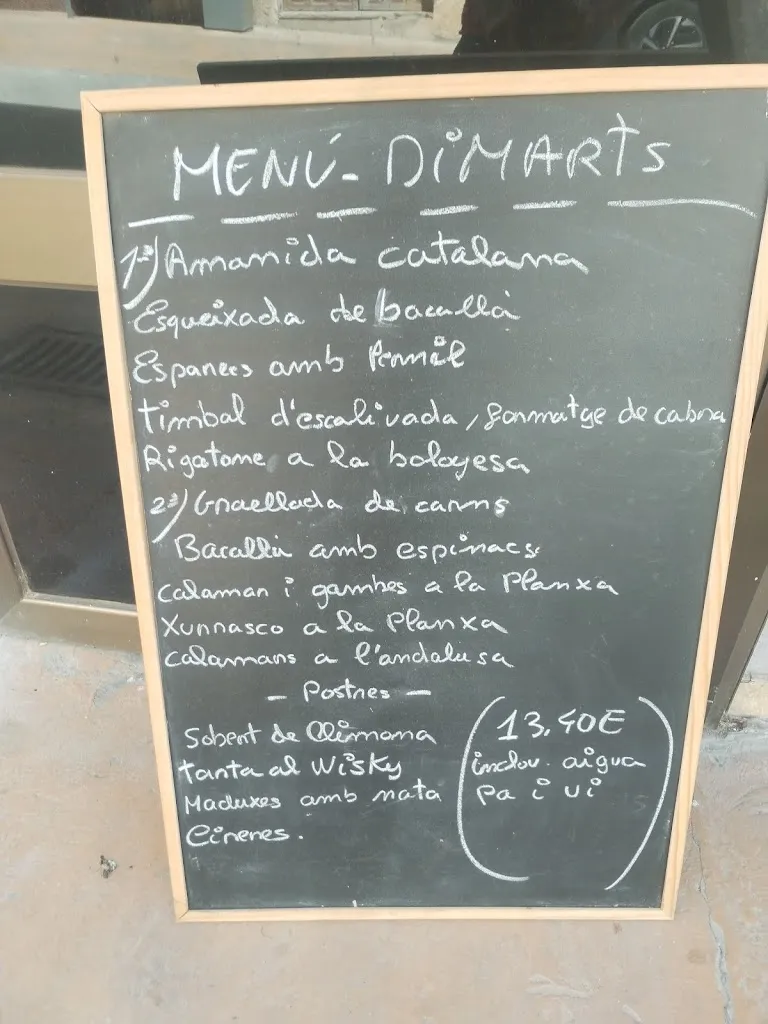 MENÚ - DIMARTS
1º) Amanida catalana
Esqueixada de bacallà
Esparrecs amb Pernil
Timbal d'escalivada, formatge de cabra
Rigatome a la boloyesa
2º) Graellada de carns
Bacallà amb espinacs
Calamar i gambes a la Planxa
Xurrasco a la Planxa
Calamars a l'andalusa
- Postres -
Sorbert de llimona
tarta al Wisky
Maduxes amb nata
Cireres.
13,40E
inclou. aigua
Pa i vi